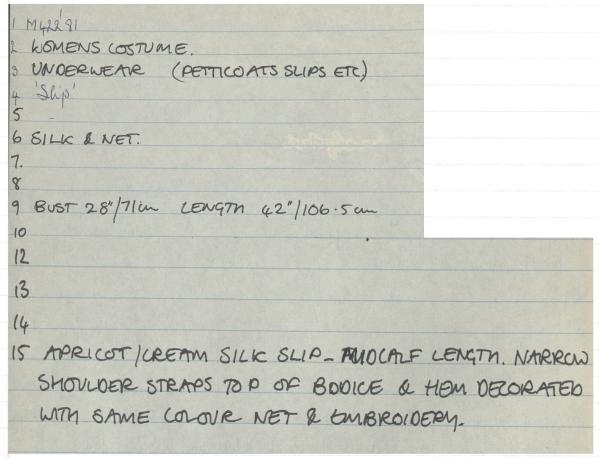 1 M422'91
2 WOMENS COSTUME.
3 UNDERWEAR (PETTICOATS SLIPS ETC)
4 'Slip'
5 -
6 SILK & NET.
7.
8
9 BUST 28"/71cm LENGTH 42"/106.5cm
10
12
13
14
15 APRICOT/CREAM SILK SLIP - MIDCALF LENGTH. NARROW
SHOULDER STRAPS TOP OF BODICE & HEM DECORATED
WITH SAME COLOUR NET & EMBROIDERY.